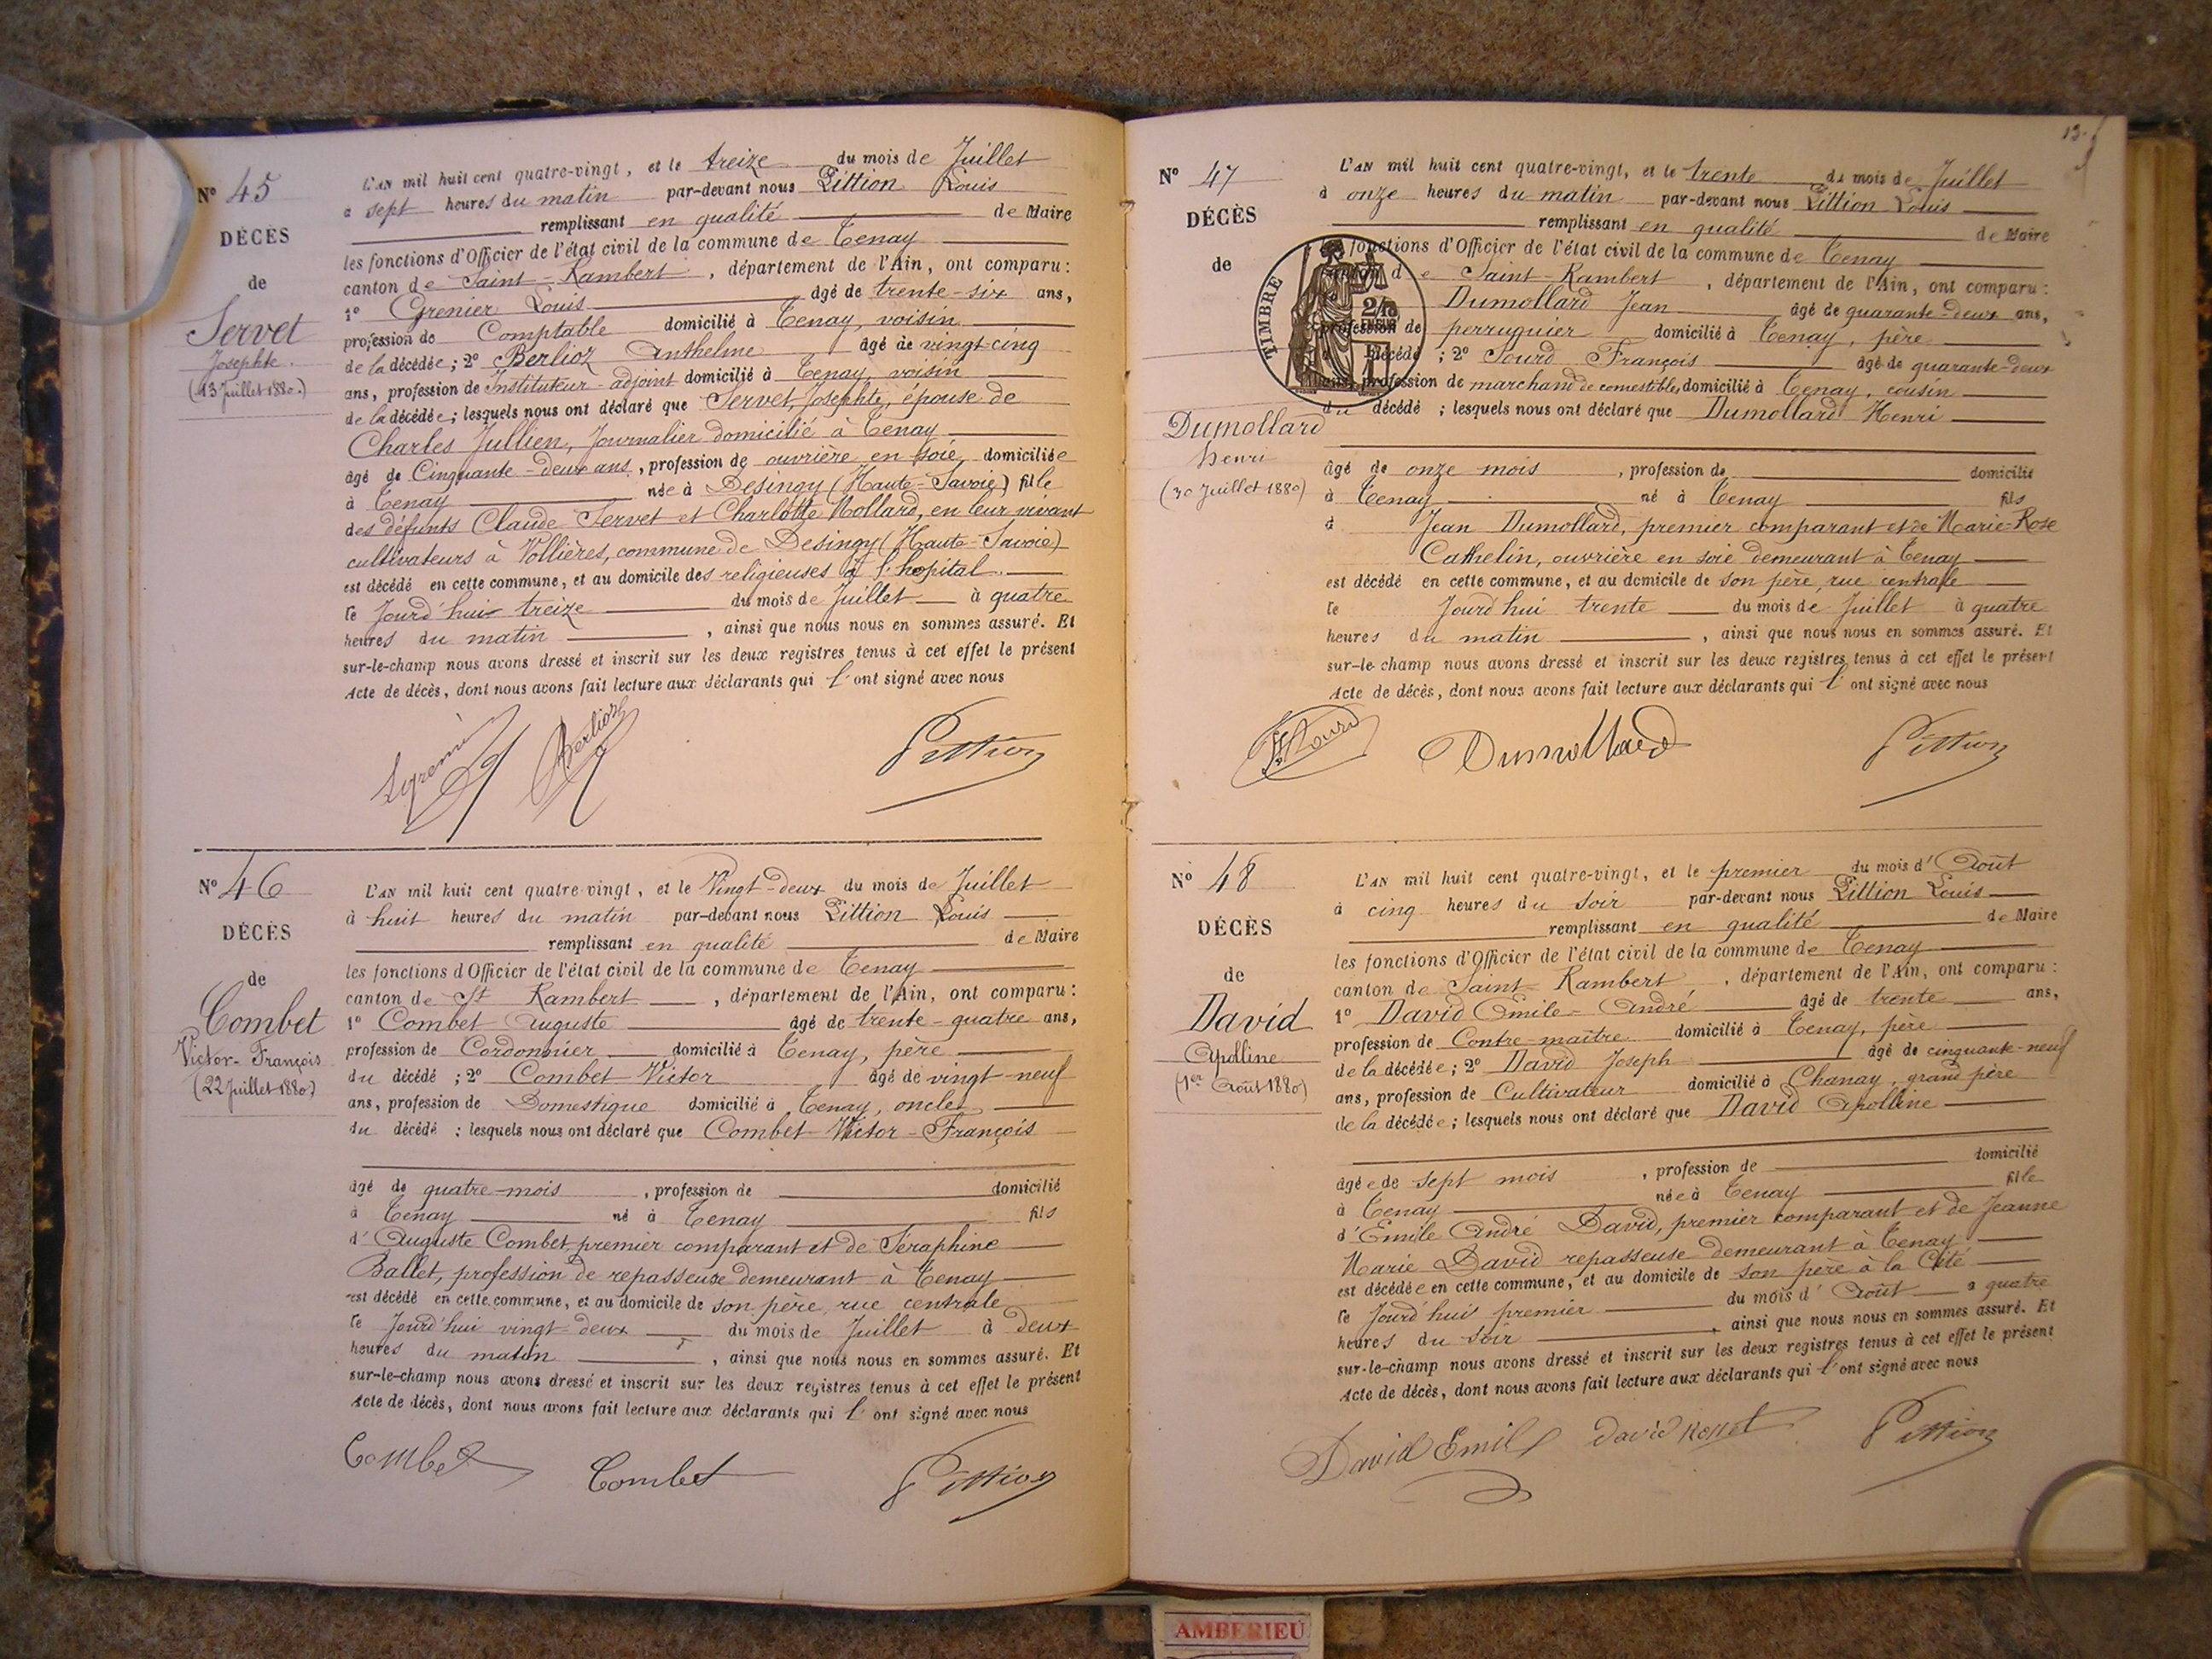 Nº 45
DÉCÈS
de
Servet
Josephte
(13 Juillet 1880.)
L'AN mil huit cent quatre-vingt, et le treize du mois de Juillet
à sept heures du matin par-devant nous Pittion Louis
remplissant en qualité de Maire
les fonctions d'Officier de l'état civil de la commune de Tenay
canton de Saint-Rambert, département de l'Ain, ont comparu :
1º Grenier Louis âgé de trente-six ans,
profession de Comptable domicilié à Tenay, voisin
de la décédée ; 2º Berlioz Anthelme âgé de vingt-cinq
ans, profession de Instituteur-adjoint domicilié à Tenay, voisin
de la décédée ; lesquels nous ont déclaré que Servet, Josephte, épouse de
Charles Jullien, Journalier domicilié à Tenay
âgé de Cinquante-deux ans, profession de ouvrière en soie, domiciliée
à Tenay née à Desingy (Haute-Savoie) fille
des défunts Claude Servet et Charlotte Mollard, en leur vivant
cultivateurs à Vollières, commune de Desingy (Haute-Savoie)
est décédé en cette commune, et au domicile des religieuses à l'hopital
le Jourd'hui treize du mois de Juillet à quatre
heures du matin, ainsi que nous nous en sommes assuré. Et
sur-le-champ nous avons dressé et inscrit sur les deux registres tenus à cet effet le présent
Acte de décès, dont nous avons fait lecture aux déclarants qui l'ont signé avec nous
Berlioz Pittion
Nº 46
DÉCÈS
de
Combet
Victor-François
(22 Juillet 1880)
L'AN mil huit cent quatre-vingt, et le Vingt-deux du mois de Juillet
à huit heures du matin par-devant nous Pittion Louis
remplissant en qualité de Maire
les fonctions d'Officier de l'état civil de la commune de Tenay
canton de St Rambert, département de l'Ain, ont comparu :
1º Combet Auguste âgé de trente-quatre ans,
profession de Cordonnier domicilié à Tenay, père
du décédé ; 2º Combet Victor âgé de vingt-neuf
ans, profession de Domestique domicilié à Tenay, oncle
du décédé ; lesquels nous ont déclaré que Combet Victor-François
âgé de quatre-mois, profession de domicilié
à Tenay né à Tenay fils
d'Auguste Combet, premier comparant et de Séraphine
Ballet, profession de repasseuse demeurant à Tenay
est décédé en cette commune, et au domicile de son père, rue centrale
le Jourd'hui vingt-deux du mois de Juillet à deux
heures du matin, ainsi que nous nous en sommes assuré. Et
sur-le-champ nous avons dressé et inscrit sur les deux registres tenus à cet effet le présent
Acte de décès, dont nous avons fait lecture aux déclarants qui l'ont signé avec nous
Combet Combet Pittion
13
Nº 47
DÉCÈS
de
Dumollard
henri
(30 Juillet 1880)
TIMBRE
L'AN mil huit cent quatre-vingt, et le trente du mois de Juillet
à onze heures du matin par-devant nous Pittion Louis
remplissant en qualité de Maire
fonctions d'Officier de l'état civil de la commune de Tenay
de Saint-Rambert, département de l'Ain, ont comparu :
Dumollard Jean âgé de quarante-deux ans,
profession de perruquier domicilié à Tenay, père
décédé ; 2º Sourd François âgé de quarante-deux
ans, profession de marchand de comestibles, domicilié à Tenay, cousin
du décédé ; lesquels nous ont déclaré que Dumollard Henri
âgé de onze mois, profession de domicilié
à Tenay né à Tenay fils
d Jean Dumollard, premier comparant et de Marie-Rose
Cathelin, ouvrière en soie demeurant à Tenay
est décédé en cette commune, et au domicile de son père, rue centrale
le Jourd'hui trente du mois de Juillet à quatre
heures du matin, ainsi que nous nous en sommes assuré. Et
sur-le-champ nous avons dressé et inscrit sur les deux registres tenus à cet effet le présent
Acte de décès, dont nous avons fait lecture aux déclarants qui l'ont signé avec nous
Sourd Dumollard Pittion
Nº 48
DÉCÈS
de
David
Apolline
(1er Août 1880)
L'AN mil huit cent quatre-vingt, et le premier du mois d'Août
à cinq heures du soir par-devant nous Pittion Louis
remplissant en qualité de Maire
les fonctions d'Officier de l'état civil de la commune de Tenay
canton de Saint Rambert, département de l'Ain, ont comparu :
1º David Emile-André âgé de trente ans,
profession de Contre-maître domicilié à Tenay, père
de la décédée ; 2º David Joseph âgé de cinquante-neuf
ans, profession de Cultivateur domicilié à Chanay, grand père
de la décédée ; lesquels nous ont déclaré que David Apolline
âgée de sept mois, profession de domicilié
à Tenay née à Tenay fille
d'Emile André David, premier comparant et de Jeanne
Marie David repasseuse demeurant à Tenay
est décédée en cette commune, et au domicile de son père à la Cité
le Jourd'hui premier du mois d'Août à quatre
heures du soir, ainsi que nous nous en sommes assuré. Et
sur-le-champ nous avons dressé et inscrit sur les deux registres tenus à cet effet le présent
Acte de décès, dont nous avons fait lecture aux déclarants qui l'ont signé avec nous
David Emile David Pittion
AMBERIEU